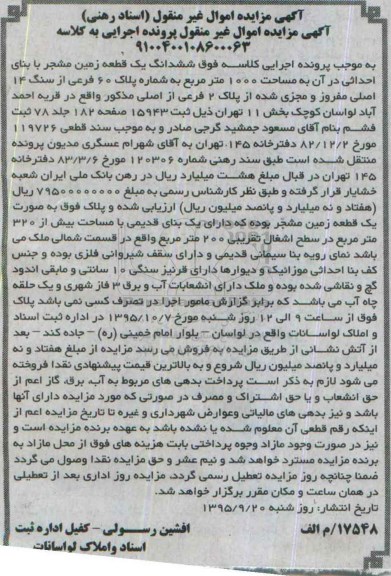 آگهی مزایده اموال غیر منقول (اسناد رهنی)
آگهی مزایده اموال غیر منقول پرونده اجرایی به کلاسه
۹۱۰۰۴۰۰۱۰۸۶۰۰۰۶۳
به موجب پرونده اجرایی کلاسه فوق ششدانگ یک قطعه زمین مشجر با بنای
احداثی در آن به مساحت ۱۰۰۰ متر مربع به شماره پلاک ۶۰ فرعی از سنگ ۱۴
اصلی مفروز و مجزی شده از پلاک ۲ فرعی از اصلی مذکور واقع در قریه احمد
آباد لواسان کوچک بخش ۱۱ تهران ذیل ثبت ۱۵۹۴۳ صفحه ۱۸۲ جلد ۷۸ ثبت
فشم بنام آقای مسعود جمشید گرجی صادر و به موجب سند قطعی ۱۱۹۷۲۶
مورخ ۸۲/۱۲/۲ دفترخانه ۱۴۵ تهران به آقای شهرام عسگری مدیون پرونده
منتقل شده است طبق سند رهنی شماره ۱۲۰۳۰۶ مورخ ۸۳/۳/۶ دفترخانه
۱۴۵ تهران در قبال مبلغ هشت میلیارد ریال در رهن بانک ملی ایران شعبه
خشایار قرار گرفته و طبق نظر کارشناس رسمی به مبلغ ۷۹۵۰۰۰۰۰۰۰۰ ریال
(هفتاد و نه میلیارد و پانصد میلیون ریال) ارزیابی شده و پلاک فوق به صورت
یک قطعه زمین مشجر بوده که دارای یک بنای قدیمی با مساحت بیش از ۳۲۰
متر مربع در سطح اشغال تقریبی ۲۰۰ متر مربع واقع در قسمت شمالی ملک می
باشد نمای رویه بنا سیمانی قدیمی و دارای سقف شیروانی فلزی بوده و جنس
کف بنا احداثی موزائیک و دیوارها دارای قرنیز سنگی ۱۰ سانتی و مابقی اندود
گچ و نقاشی شده بوده و ملک دارای انشعابات آب و برق ۳ فاز شهری و یک حلقه
چاه آب می باشد که برابر گزارش مامور اجرا در تصرف کسی نمی باشد پلاک
فوق از ساعت ۹ الی ۱۲ روز شنبه مورخ ۱۳۹۵/۱۰/۷ در اداره ثبت اسناد
و املاک لواسانات واقع در لواسان – بلوار امام خمینی (ره) – جاده کند – بعد
از آتش نشانی از طریق مزایده به فروش می رسد مزایده از مبلغ هفتاد و نه
میلیارد و پانصد میلیون ریال شروع و به بالاترین قیمت پیشنهادی نقدا فروخته
می شود لازم به ذکر است پرداخت بدهی های مربوط به آب، برق، گاز اعم از
حق انشعاب و یا حق اشتراک و مصرف در صورتی که مورد مزایده دارای آنها
باشد و نیز بدهی های مالیاتی وعوارض شهرداری و غیره تا تاریخ مزایده اعم از
اینکه رقم قطعی آن معلوم شده یا نشده باشد به عهده برنده مزایده است و
نیز در صورت وجود مازاد وجوه پرداختی بابت هزینه های فوق از محل مازاد به
برنده مزایده مسترد خواهد شد و نیم عشر و حق مزایده نقدا وصول می گردد
ضمنا چنانچه روز مزایده تعطیل رسمی گردد، مزایده روز اداری بعد از تعطیلی
در همان ساعت و مکان مقرر برگزار خواهد شد.
تاریخ انتشار: روز شنبه ۱۳۹۵/۹/۲۰
۱۷۵۴۸/م الف
افشین رسولی – کفیل اداره ثبت
اسناد واملاک لواسانات